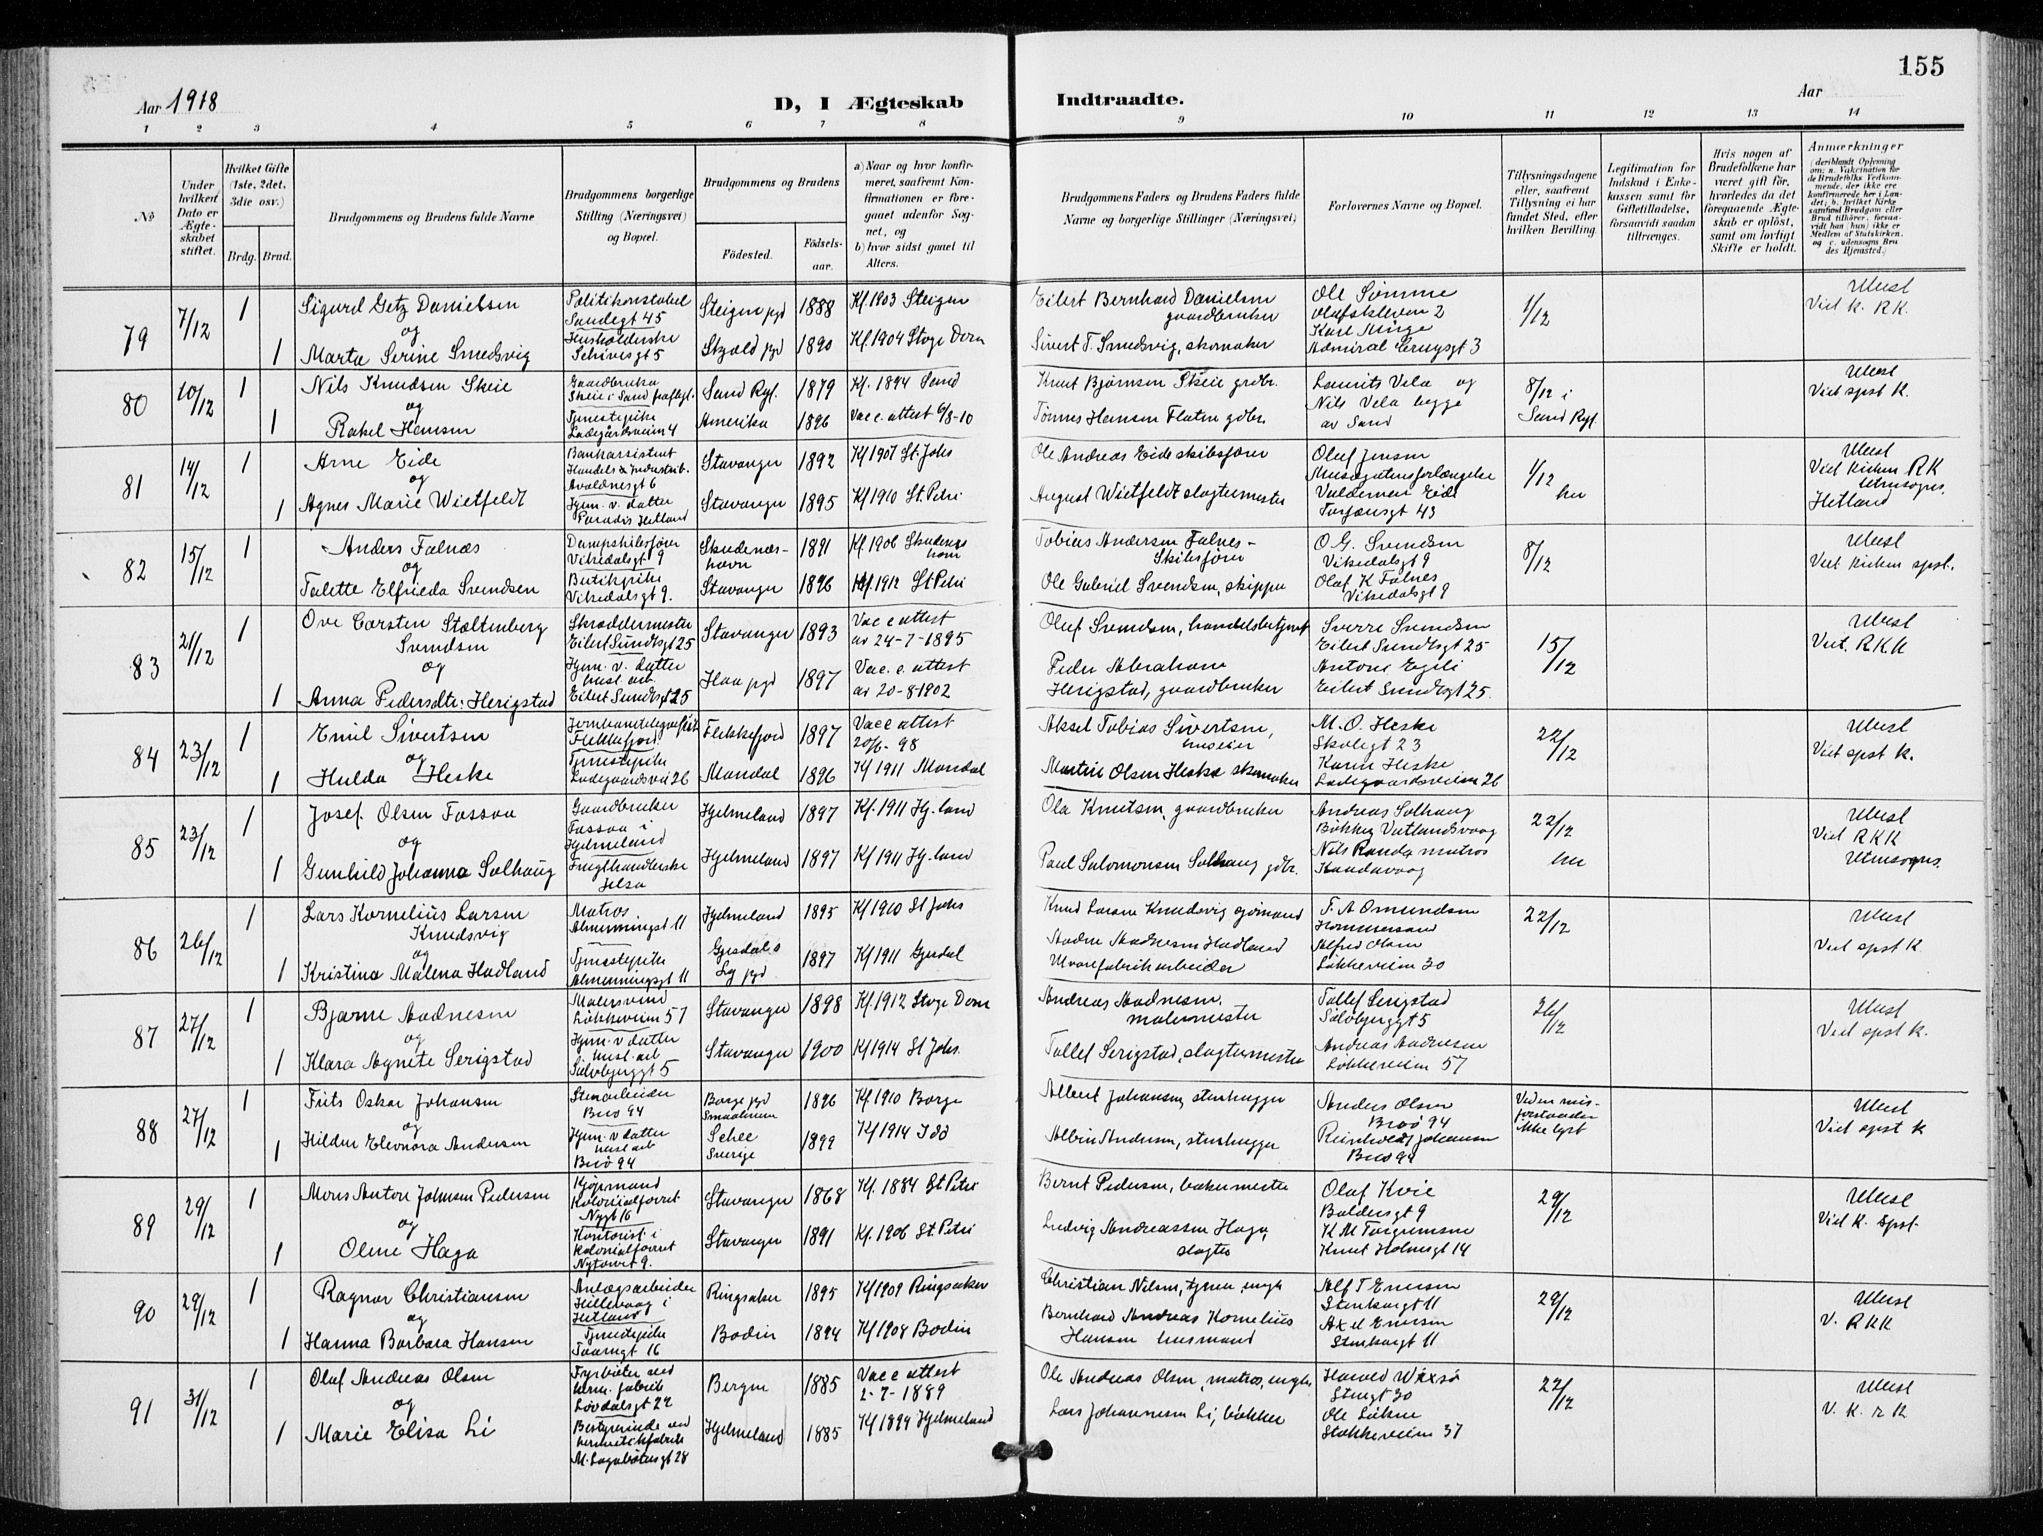 155
Aar 1918
D, I Ægteskab
Indtraadte.
Aar
1 2 3 4 5 6 7 8 9 10 11 12 13 14
No
Under hvilken Dato er Ægteskabet stiftet.
Hvilket Gifte (1ste, 2det, 3die osv.)
Brdg. Brud.
Brudgommens og Brudens fulde Navne
Brudgommens borgerlige Stilling (Næringsvei) og Bopæl.
Brudgommens og Brudens
Fødested.
Fødselsaar.
a) Naar og hvor konfirmeret, saafremt Konfirmationen er foregaaet udenfor Sognet, og
b) hvor sidst gaaet til Alters.
Brudgommens Faders og Brudens Faders fulde Navne og borgerlige Stillinger (Næringsvei)
Forlovernes Navne og Bopæl.
Tillysningsdagene eller, saafremt Tillysning ei har fundet Sted, efter hvilken Bevilling.
Legitimation for Indskud i Enkekassen samt for Giftetilladelse, forsaavidt saadan tiltrænges.
Hvis nogen af Brudefolkene har været gift før, hvorledes da det foregaaende Ægteskab er opløst, samt om lovligt Skifte er holdt.
Anmærkninger
79 7/12 1 Sigurd Getz Danielsen Politikonstabel Sandegt 45 Steigen pgd 1888 Kf. 1903 Steigen Eilert Bernhard Danielsen gaardbruker Ole Sømme Olafskleven 2 1/12 Ubest Viet K. RK.
og
1 Marta Serine Smedsvig Husholderske 5 Skjold pgd 1890 Kf. 1904 Stvgr Dom Sivert T. Smedsvig, skomaker Karl Minge Admiral Cruysgt 3
80 10/12 1 Nils Knudsen Skeie Gaardbruker Skeie i Sand Sand Ryf. 1879 Kf. 1894 Sand Knut Bjørnsen Skeie grdbr. Laurits Vela og 8/12 i Sand Ryf. Ubest Viet spst K.
og
1 Rakel Hansen Tjenestepike Ladegårdsveien 4 Amerika 1896 Vacc. attest 6/8-10 Tønnes Hansen Flaten gdbr. Nils Vela begge av Sand
81 14/12 1 Arne Eide Bankassistent Handels & Industrib. Avaldsnesgt 6 Stavanger 1892 Kf 1907 St. Johs Ole Andreas Eide skibsfører Oluf Jensen Musegatensforlængelse 1/12 her Ubest Viet Kirken RK Utensogns. Hetland
og
1 Agnes Marie Wietfeldt Hjem. v. datter Paradis Hetland Stavanger 1895 Kf 1910 St. Petri August Wietfeldt slagtermester Valdemar Eide 43
82 15/12 1 Anders Falnæs Dampskibsfører Vikedalsgt 9 Skudeneshavn 1891 Kf. 1906 Skudeneshavn Tobias Andersen Falnes - Skibsfører O. G. Svendsen Vikedalsgt 9 8/12 Ubest Viet Kirken spst.
og
1 Talette Elfrieda Svendsen Butikpike Vikedalsgt 9. Stavanger 1896 Kf. 1912 St Petri Ole Gabriel Svendsen, skipper Olaf K Falnes Vikedalsgt 9
83 21/12 1 Ove Carsten Stoltenberg Svendsen Skræddermester Eilert Sundtsgt 25 Stavanger 1893 Vacc attest av 24-7-1895 Oluf Svendsen, handelsbetjent Sverre Svendsen Eilert Sundtsgt 25 15/12 Ubest Viet. RKK
og
1 Anna Pedersdtr. Herigstad Hjem. v. datter husl. arb. Eilert Sundtsgt 25 Haa pgd 1897 Vac. c. attest av 20-8-1902 Peder Abraham Herigstad, gaardbruker Antone Egeli Eilert Sundtsgt 25.
84 23/12 1 Emil Sivertsen Flekkefjord Flekkefjord 1897 Vacc attest 20/6-98 Aksel Tobias Sivertsen, huseier M. O. Heske Skolegt 23 22/12 Ubest Viet spst K.
og
1 Hulda Heske Tjenestepike Ladegaardsvei 26 Mandal 1896 Kf 1911 Mandal Martin Olsen Heske skomaker Karen Heske Ladegaardsveien 26
85 23/12 1 Josef Olsen Fossaa Gaardbruker Fossaa i Hjelmeland Hjelmeland 1897 Kf. 1911 Hj.land Ola Knutsen, gaardbruker Andreas Solhaug Bøkker Vatlandsvaag 22/12 her Ubest Viet RKK Utensogns.
og
1 Gunhild Johanna Solhaug Frugthandlerske Jelsa Hjelmeland 1897 Kf 1911 Hj.land Paul Salomonsen Solhaug gdbr. Nils Randa matros Kandavaag
86 26/12 1 Lars Kornelius Larsen Knudsvig Matros. Almenningsgt 11 Hjelmeland 1895 Kf 1910 St Johs Knud Larsen Knudsvig sjømand T. A. Omundsen Hommersand 22/12 Ubest Viet spst K
og
1 Kristina Malena Hadland Tjenestepike Almenningsgt 11 Gjesdal Ly pgd 1897 Kf 1911 Gjesdal Aadne Aadnesen Hadland Uvarefabrikarbeider Alfred Olsen Løkkeveien 30
87 27/12 1 Bjarne Aadnesen Malersvend Løkkeveien 57 Stavanger 1898 Kf. 1912 Stvgr Dom Andreas Aadnesen. malermester Tollef Serigstad Sølvbergsgt 5 26/12 Ubest Viet spst K.
og
1 Klara Agnete Serigstad Hjem. v datter husl. arb Sølvbergsgt 5 Stavanger 1900 Kf 1914 St Johs. Tollef Serigstad, slagtermester Andreas Aadnesen Løkkeveien 57
88 27/12 1 Frits Oskar Johansen Stenarbeider Buø 94 Borge pgd Smaalenene 1896 Kf. 1910 Borge Albert Johansen, stenhugger Anders Olsen Buø 94 Ved en misforstaaelse ikke lyst Ubest Viet spst K
og
1 Hildur Eleonora Andersen Hjem. v datter husl arb Buø 94 Sverige 1899 Kf 1914 Idd Albin Andersen, stenhugger Reinholdt Johansen Buø 94
89 29/12 1 Mons Anton Johnsen Pedersen Kjøpmand Kolonialforret Nygt 16 Stavanger 1868 Kf. 1884 St Petri Bernt Pedersen, bakermester Olaf Kvie Baldersgt 9 29/12 Ubest Viet K. Spst.
og
1 Oline Haga Kontorist i kolonialforret Nytorvet 9. Stavanger 1891 Kf. 1906 St. Petri Ludvig Andreassen Haga, slagter K M Torgersen Knut Holmsgt 14
90 29/12 1 Ragnar Christiansen Anlægsarbeider Hillevaag i Hetland Ringsaker 1895 Kf 1909 Ringsaker Christian Nilsen, Alf T Enersen Stenkargt 11 29/12 Ubest V. RKK
og
1 Hanna Barbara Hansen Tjenestepike 16 Bodin 1894 Kf 1908 Bodin Bernhard Andreas Kornelius Hansen husmand Axel Enersen Stenkargt 11
91 31/12 1 Olaf Andreas Olsen Fyrbøter ved herm. fabrik Løvdalsgt 22 Bergen 1885 Vacc attest 2-7-1889 Ole Andreas Olsen, matros, Harald Waxsø Stengt 30 22/12 Ubest V. K. R K
og
1 Marie Elisa Li Bestyrerinde ved hermetikfabrik M. Lagabøtersgt 28 Hjelmeland 1885 Kf 1894 Hjelmeland Lars Johannesen Li, bøkker Ole Løkne Stokkeveien 37